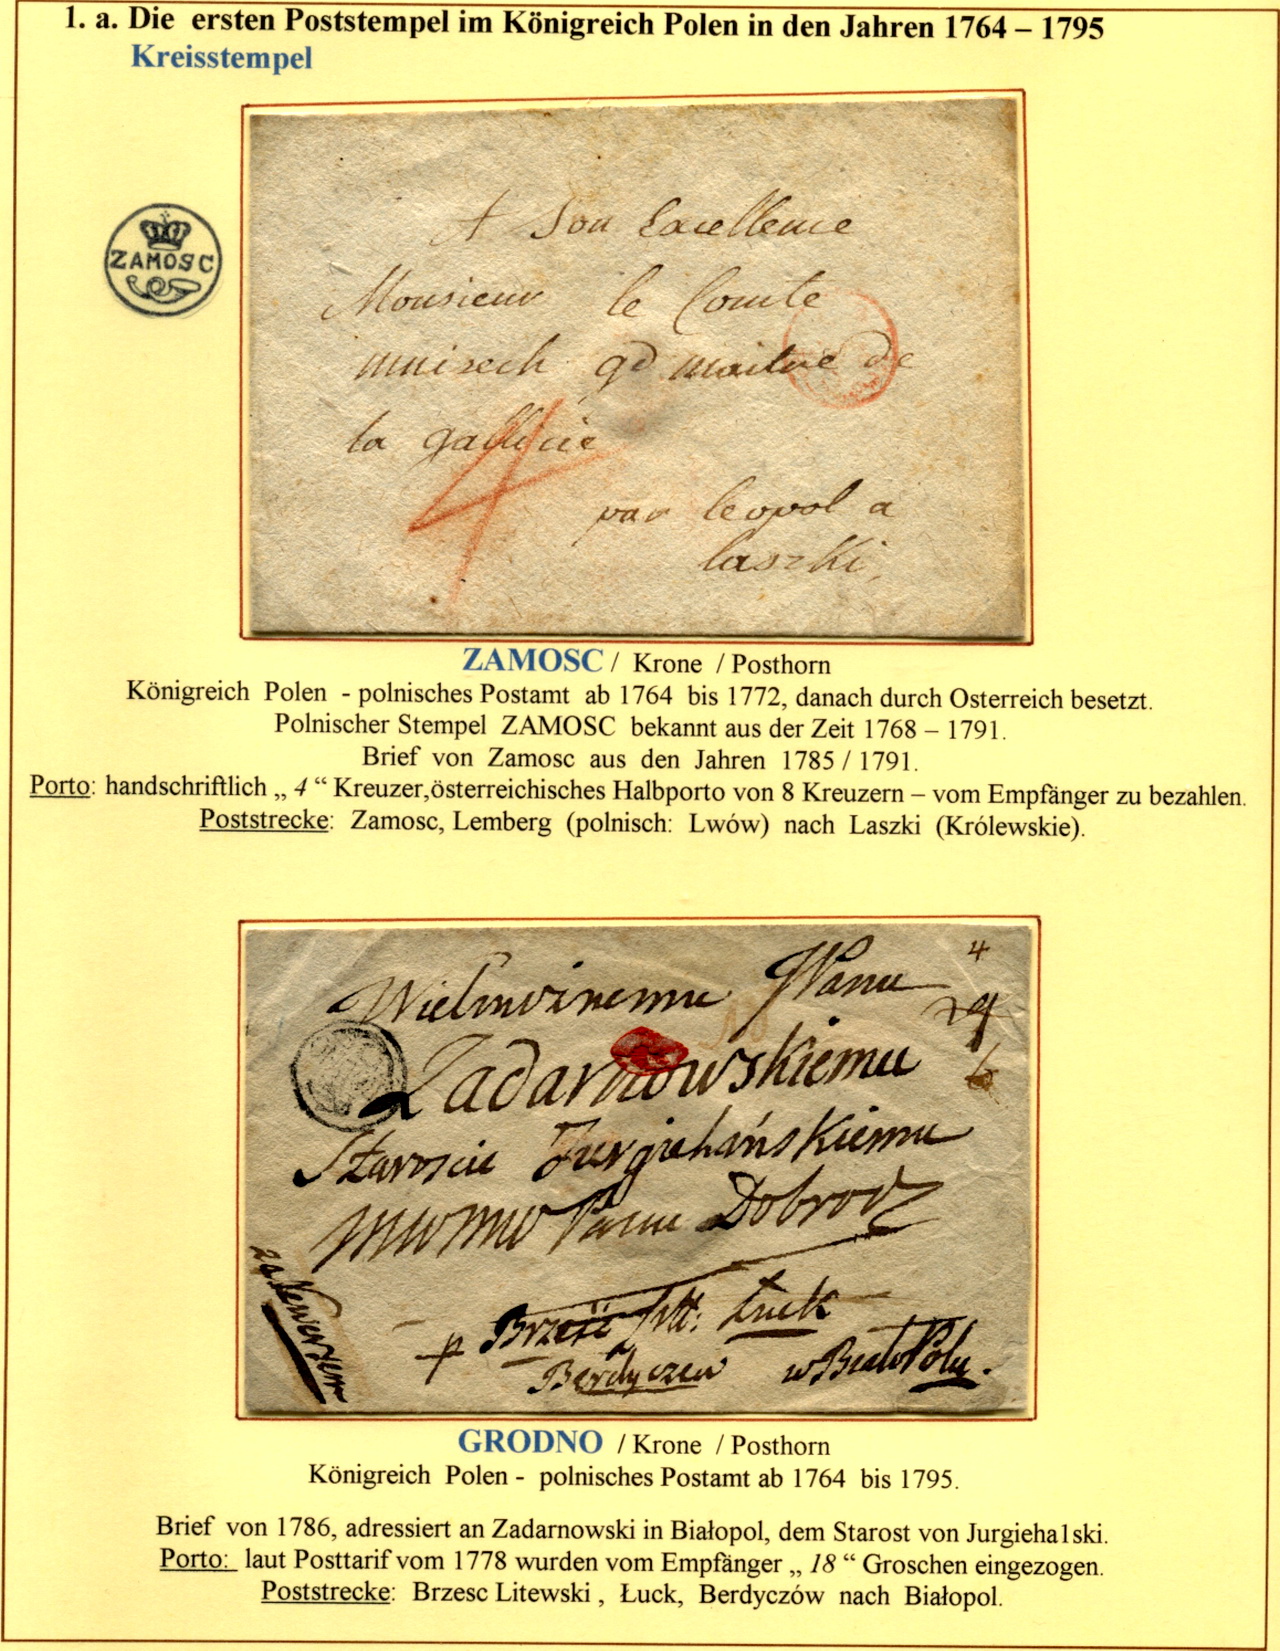 1. a. Die ersten Poststempel im Königreich Polen in den Jahren 1764 – 1795
Kreisstempel
ZAMOSC
A Son Excellence
Monsieur le Comte
mnisech gd maitre de
la gallicie
4
par leopol a
laszki
ZAMOSC / Krone / Posthorn
Königreich Polen - polnisches Postamt ab 1764 bis 1772, danach durch Osterreich besetzt.
Polnischer Stempel ZAMOSC bekannt aus der Zeit 1768 – 1791.
Brief von Zamosc aus den Jahren 1785 / 1791.
Porto: handschriftlich „ 4 “ Kreuzer,österreichisches Halbporto von 8 Kreuzern – vom Empfänger zu bezahlen.
Poststrecke: Zamosc, Lemberg (polnisch: Lwów) nach Laszki (Królewskie).
4
Wielmoznemu Panu
Zadarnowskiemu
Staroscie Jurgiehańskiemu
Panu Dobrodz
p Brześć Litt: Łuck
Berdyczew w Białopolu.
GRODNO / Krone / Posthorn
Königreich Polen - polnisches Postamt ab 1764 bis 1795.
Brief von 1786, adressiert an Zadarnowski in Białopol, dem Starost von Jurgiehalski.
Porto: laut Posttarif vom 1778 wurden vom Empfänger „ 18 “ Groschen eingezogen.
Poststrecke: Brzesc Litewski , Łuck, Berdyczów nach Białopol.